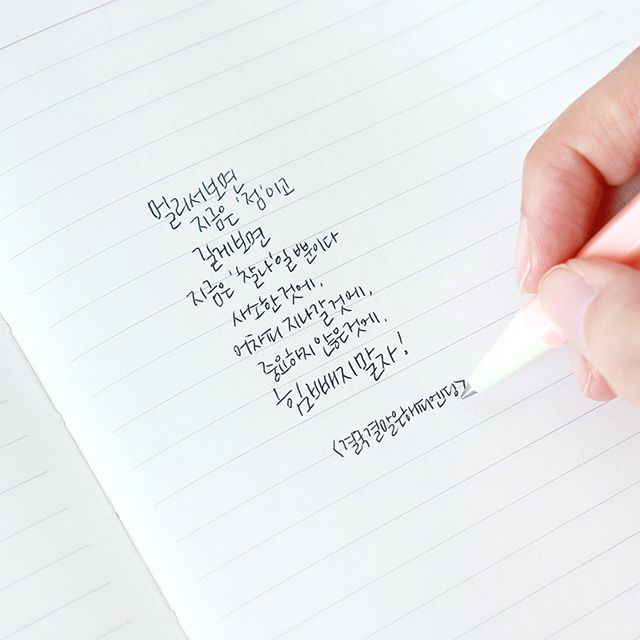 멀리서보면
지금은 '점'이고
길게보면
지금은 '찰나'일 뿐이다
사소한 것에,
어차피 지나갈 것에,
중요하지 않은것에,
힘빼지말자!
<결국결말은해피엔딩>